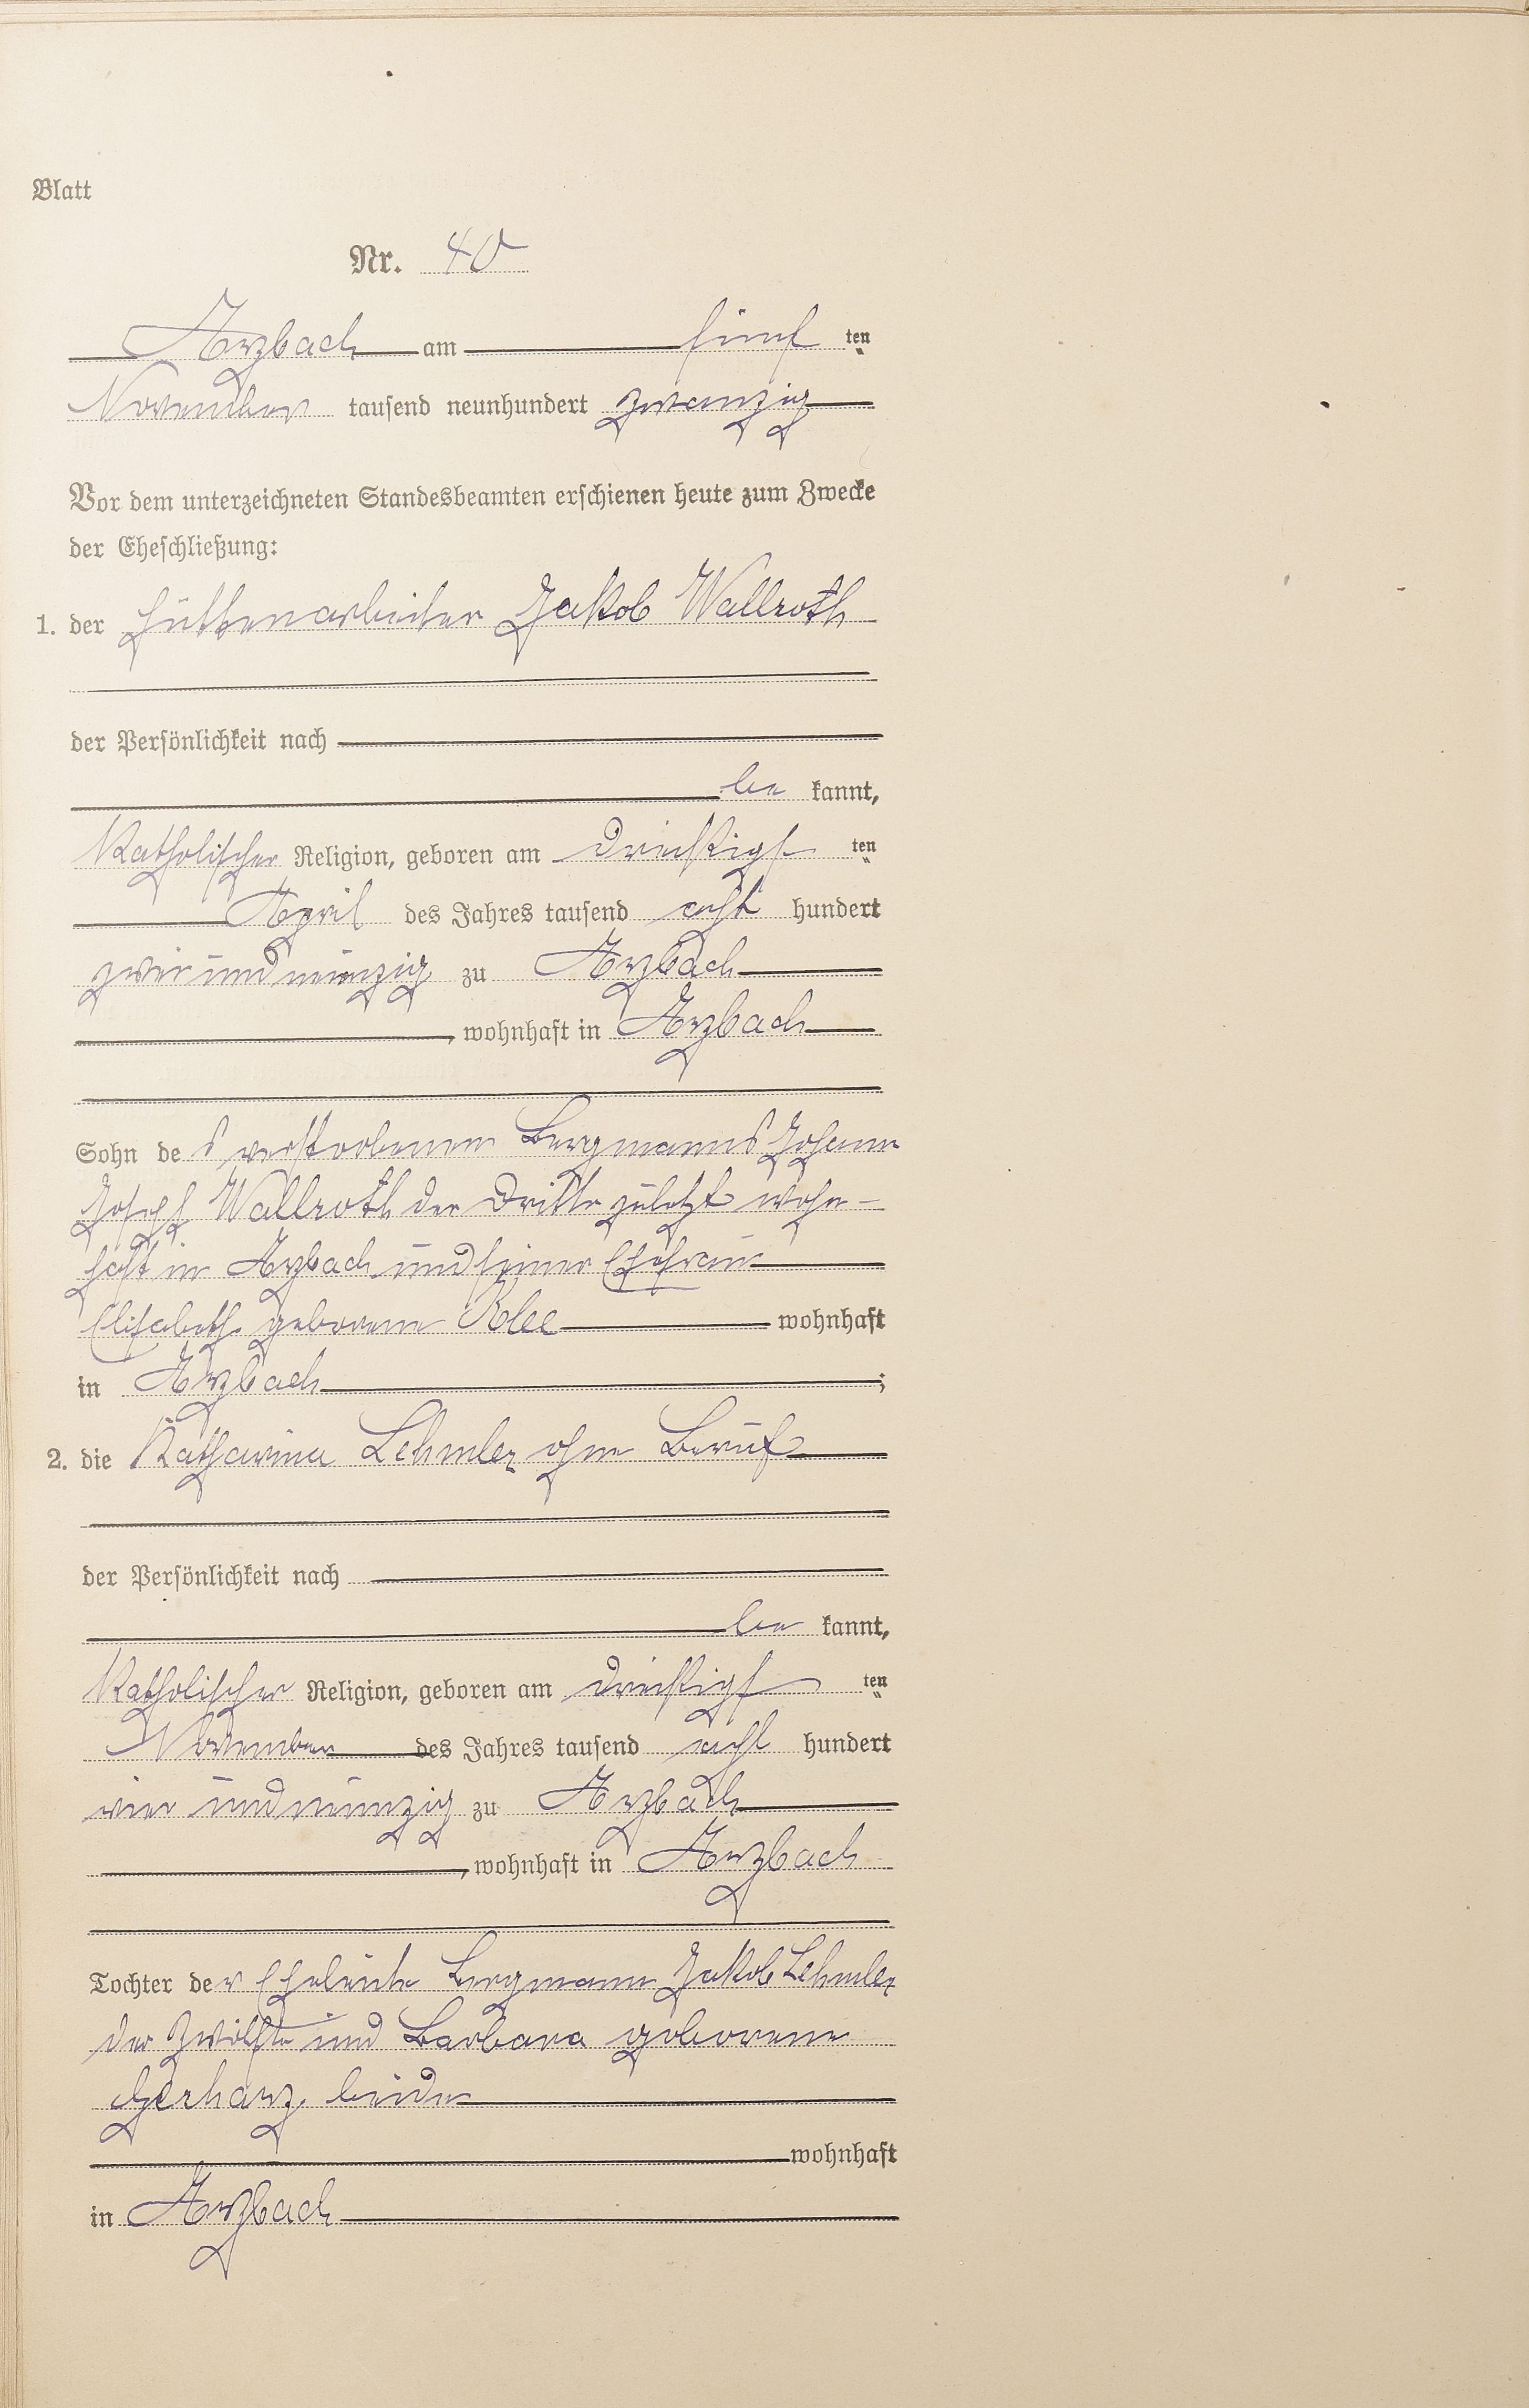 Blatt
Nr. 40
Arzbach am fünf ten
November tausend neunhundert zwanzig
Vor dem unterzeichneten Standesbeamten erschienen heute zum Zwecke
der Eheschließung:
1. der Hüttenarbeiter Jakob Wallroth
der Persönlichkeit nach
be kannt,
Katholischer Religion, geboren am dreißigs ten
April des Jahres tausend acht hundert
zweiundneunzig zu Arzbach
, wohnhaft in Arzbach
Sohn des verstorbenen Bergmanns Johann
Joseph Wallroth der Dritte zuletzt wohn-
haft in Arzbach und seiner Ehefrau
Elisabeth geborene Klee wohnhaft
in Arzbach ;
2. die Katharina Lehmler ohne Beruf
der Persönlichkeit nach
be kannt,
Katholischer Religion, geboren am dreißigs ten
November des Jahres tausend acht hundert
vier und neunzig zu Arzbach
, wohnhaft in Arzbach
Tochter der Eheleute Bergmann Jakob Lehmler
der Zwölfte und Barbara geborene
Gerharz beide
wohnhaft
in Arzbach